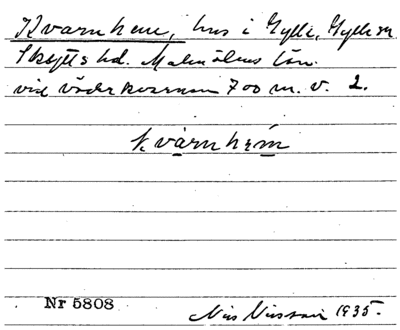 Kvarnhem, hus i Gylle, Gylle sn
Skytts hd. Malmöhus län.
vid väderkvarnen 700 m. v. 2.
kvarnhem
Nr 5808
Nils Nilsson 1935.